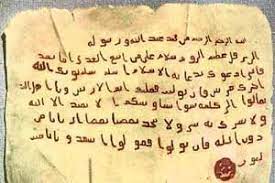 بسم الله الرحمن الرحيم من محمد عبد الله ورسوله
الى هرقل عظيم الروم سلام على من اتبع الهدى اما بعد
فانى ادعوك بدعاية الاسلام اسلم تسلم يوتك الله
اجرك مرتين فان توليت فعليك اثم
تعالوا الى كلمة سوا بيننا وبينكم الا نعبد الا الله
ولا نشرك به ولا يتخذ بعضنا بعضا اربابا من
دون الله فان تولوا فقولوا